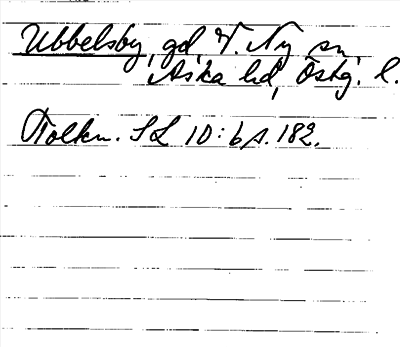 Ubbelsby, gd, V. Ny sn,
Aska hd, Östg. l.
Tolkn. SL 10:6 s. 182.